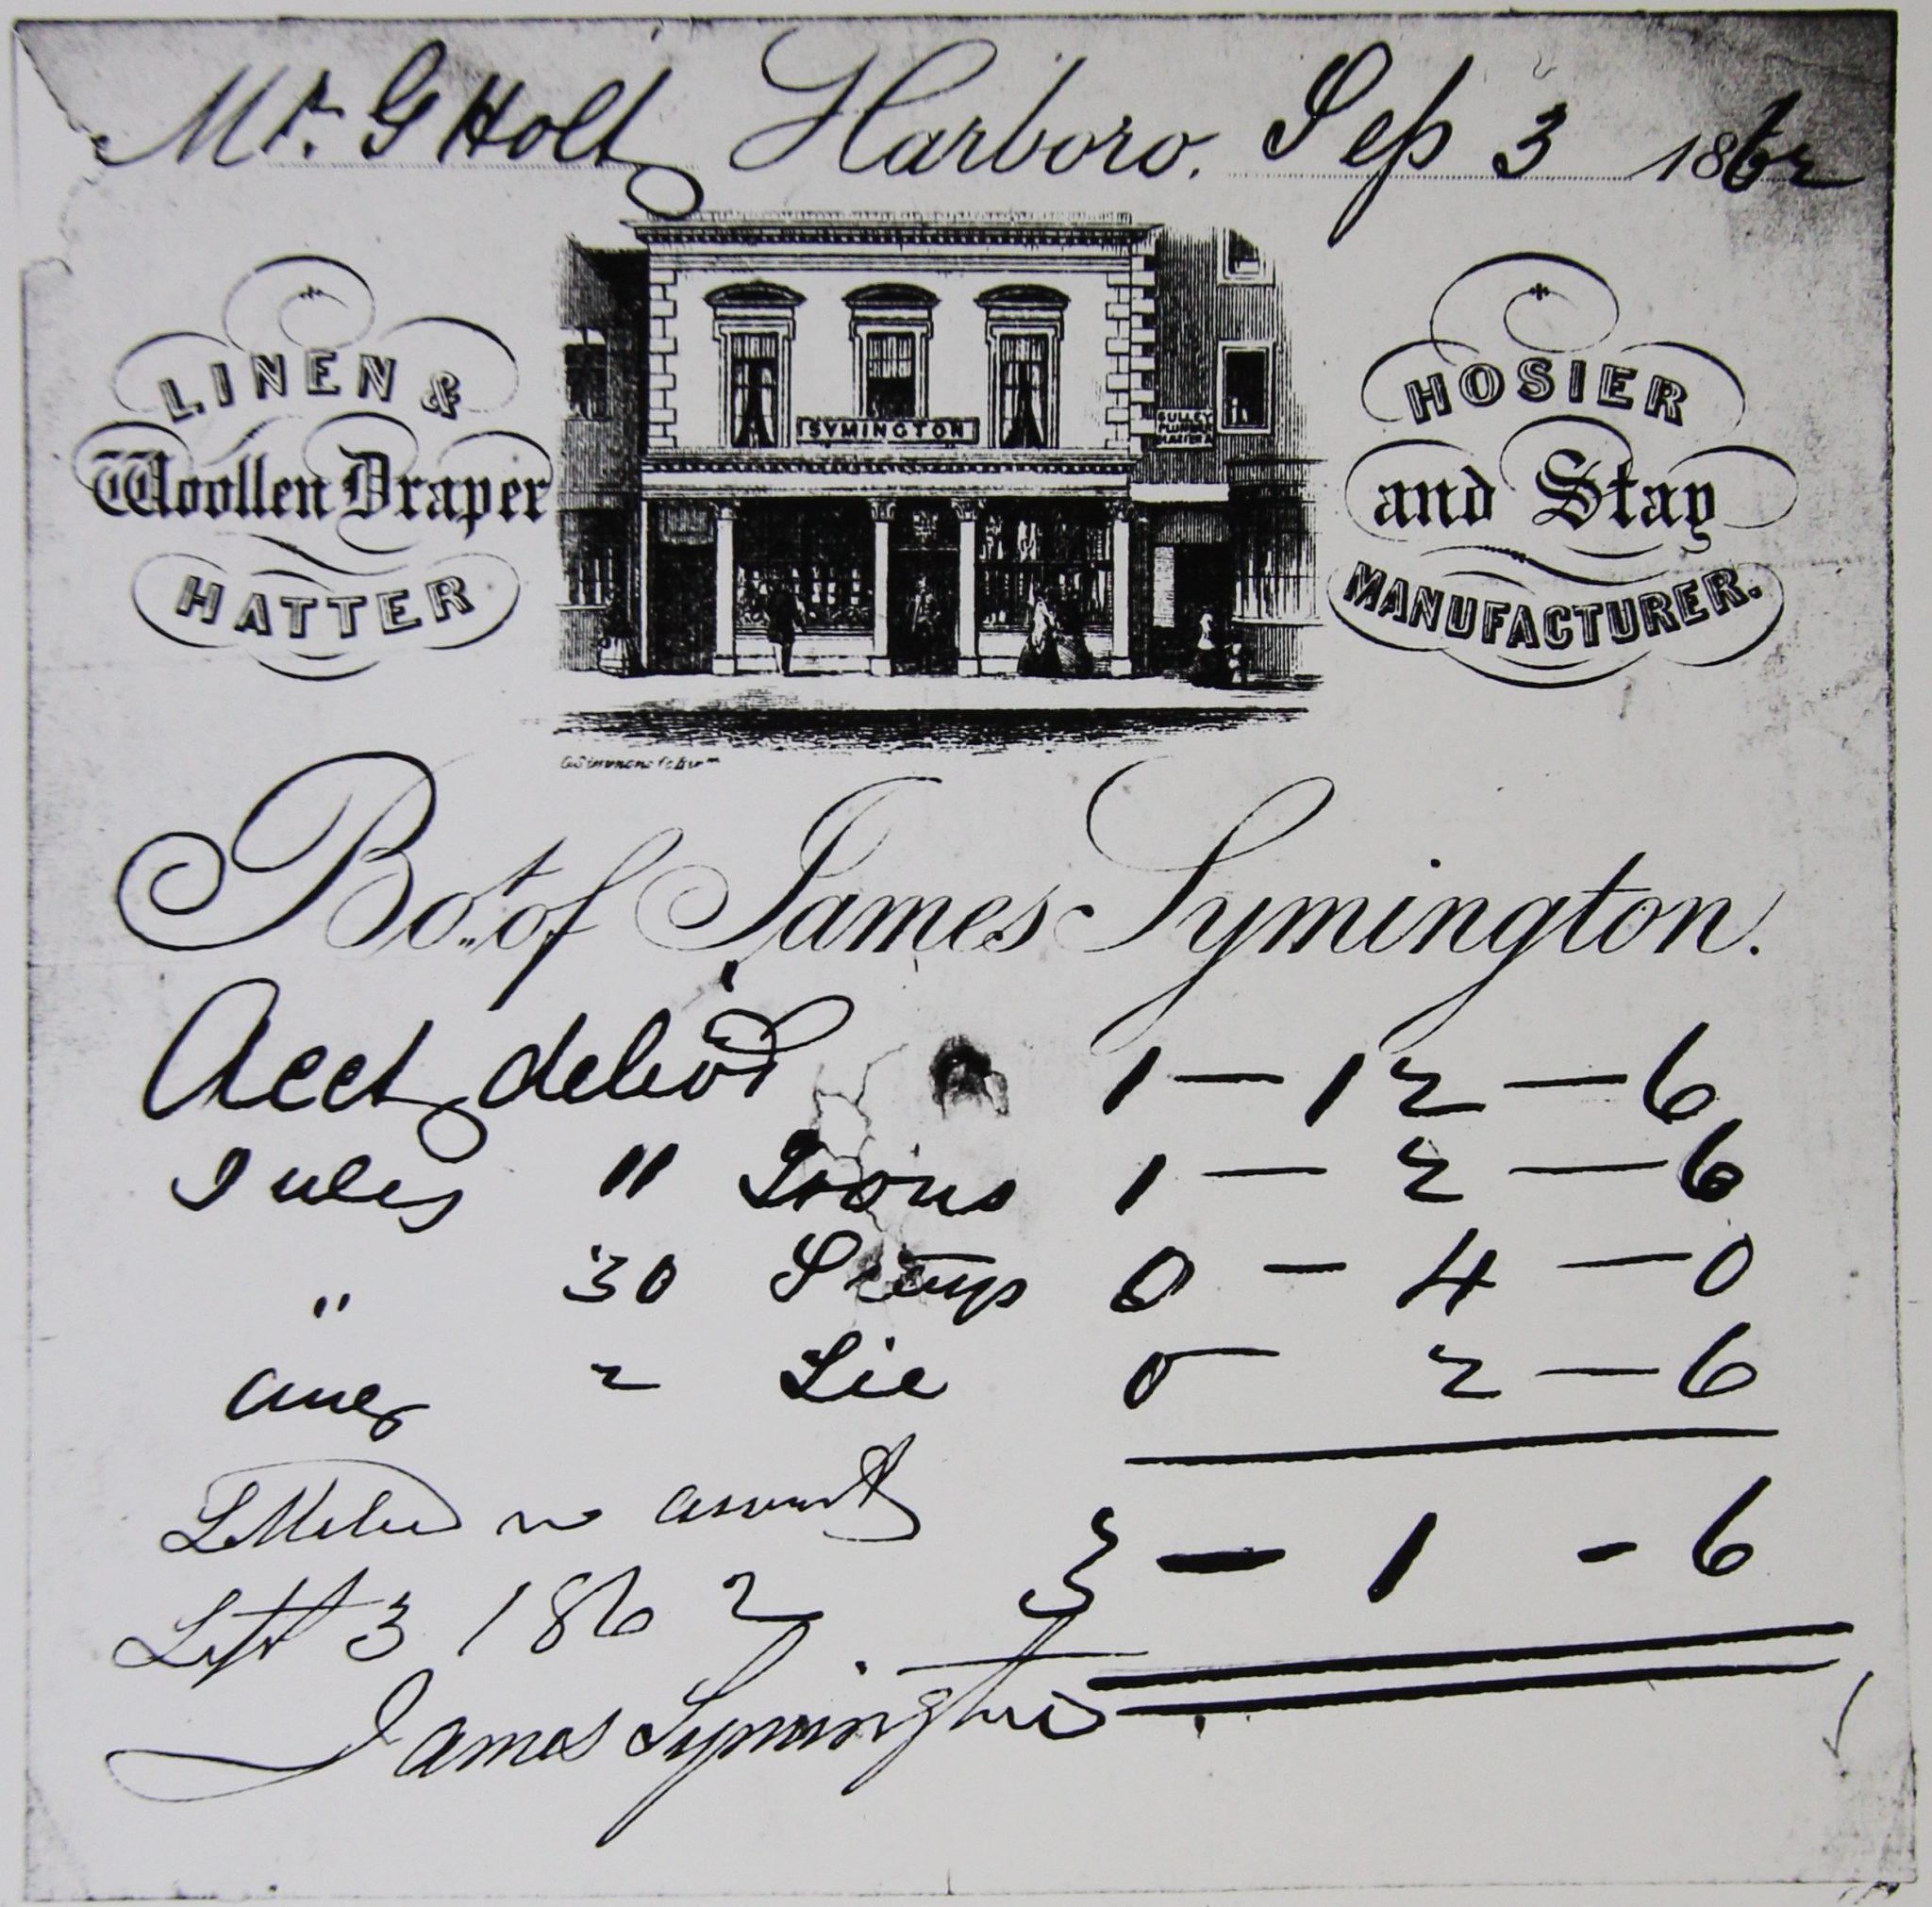 Mr. G Holt Harboro. Sep 3 1862
LINEN &
Woollen Draper
HATTER
SYMINGTON
GULLEY
PLUMBER
HOSIER
and Stay
MANUFACTURER.
Bot. of James Symington.
Acct delivd 1 — 12 — 6
July 11 Trons 1 — 2 — 6
" 30 0 — 4 — 0
Aug 2 Tie 0 — 2 — 6
Settled
3 — 1 - 6
Sept 3 1862
James Symington